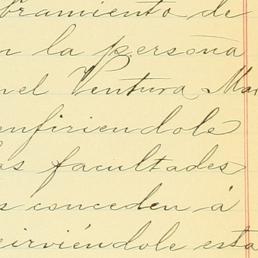 bramiento de
n la persona
nel Ventura Mar
nfiriendole
as facultades
s conceden á
irviéndole esta